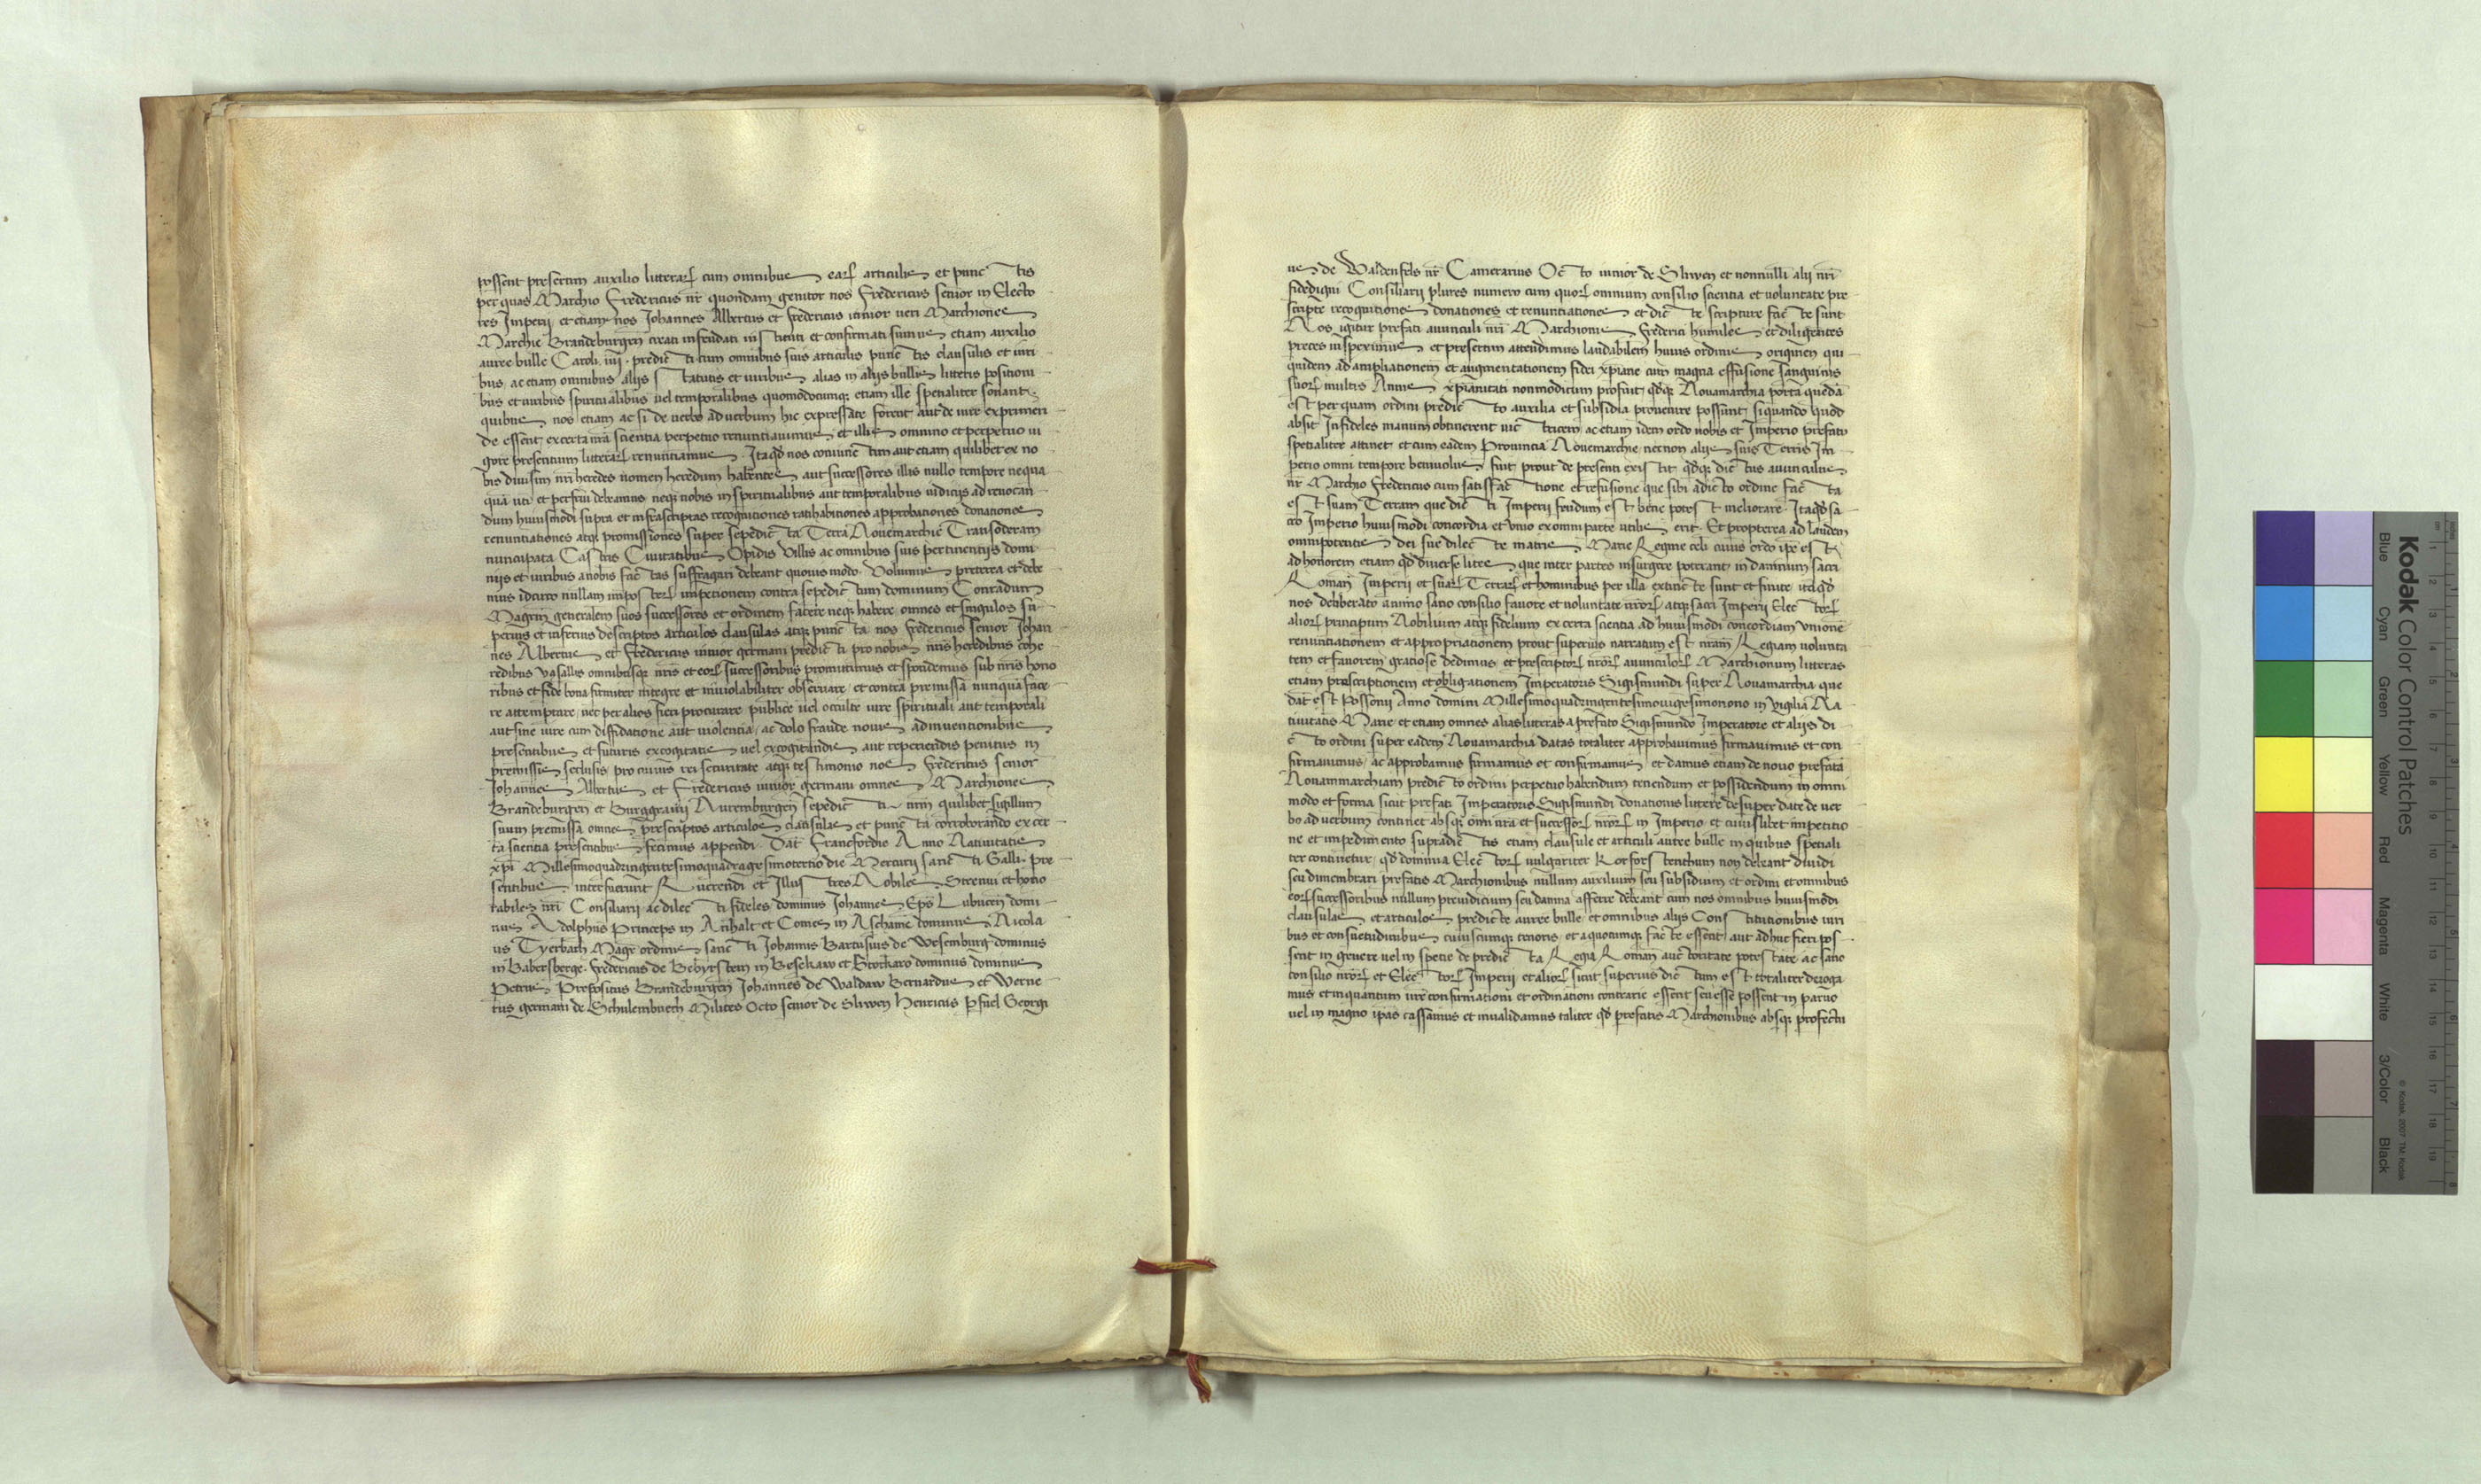 possent presertim auxilio litterarꝝ cum omnibus earꝝ articulis et punctis
per quas Marchio Fredericus nr̄ quondam genitor nos Fredericus senior in Electo
res Imperii et etiam nos Johannes Albertus et Fredericus iunior veri Marchiones
Marchie Brandeburgen̄ creati infeudati instituti et confirmati sumus etiam auxilio
auree bulle Caroli .iiii. predicti cum omnibus suis articulis punctis clausulis et iuri
bus, ac etiam omnibus alijs statutis et iuribus alias in alijs bullis litteris positioni
bus et iuribus spiritualibus uel temporalibus quomodocumqꝫ etiam ille specialiter sonant
quibus nos etiam ac si de verbo ad verbum hic expressate forent aut de iure exprimen
de essent ex certa nrā scientia perpetuo renunciauimus et illis omnino et perpetuo ui
gore presentium litterarꝝ renunciamus . Itaqd̄ nos coniunctim aut etiam quilibet ex no
bis diuisim nrī heredes nomen heredum habentes aut successores illis nullo tempore nequa
quā uti et perfrui debeamus neqꝫ nobis in spiritualibus aut temporalibus iudicijs ad reuocan
dum huiusmodi supra et infrascriptas recognitiones ratihabitiones approbationes donationes
renuntiationes atqꝫ promissiones super sepedicta Terra Nouemarchie Transoderam
nuncupata Castris Ciuitatibus Opidis Villis ac omnibus suis pertinentijs domi
nijs et iuribus a nobis factas suffragari debeant quouis modo. Volumus preterea et debe
mus idcirco nullam imposterꝝ impetionem contra sepedictum dominum Conradum
Magrm̄ generalem suos successores et ordinem facere neqꝫ habere omnes et singulos su
perius et inferius descriptos articulos clausulas atqꝫ puncta nos Fredericus senior Johan
nes Albertus et Fredericus iunior germani predicti pro nobis nrīs heredibus cohe
redibus vasallis omnibusqꝫ nrīs et eorꝝ successoribus promittimus et spondemus sub nrīs hono
ribus et fide bona firmiter integre et inuiolabiliter obseruare, et contra premissā nunquā face
re attemptare, nec per alios fieri procurare publice uel occulte iure spirituali aut temporali
aut sine iure cum diffidatione aut uiolentia, ac dolo fraude nouis adinuentionibus
presentibus et futuris excogitatis uel excogitandis aut reperiendis penitus in
premissis seclusis, pro cuius rei securitate atqꝫ testimonio nos Fredericus senior
Johannes Albertus et Fredericus iunior germani omnes Marchiones
Brandeburgen̄ et Burggrauij Nuremburgen̄ sepedicti nrm̄ quilibet sigillum
suum premissa omnes prescriptos articulos clausulas et puncta corroborando ex cer
ta scientia presentibus fecimus appendi. Dat̄ Francfordie Anno Natiuitatis
xpī Millesimoquadringentesimoquadragesimotertio die Mercurij sancti Galli, pre
sentibus interfuerunt Reuerendi et Illustres Nobiles Strenui et hono
rabiles nrī Consiliarij ac dilecti fideles dominus Johannes Ep̄s Lubucen̄ domi
nus Adolphus Princeps in Anhalt et Comes in Aschanie dominus Nicola
us Tyerbach Magr̄ ordinis sancti Johannis Bartusius de Wesemburg dominus
in Babersberge. Fredericus de Bebyrstein in Besekaw et Storkaro dominus dominus
Petrus Prepositus Brandeburgen̄ Johannes de Waldaw Bernardus et Werne
rus germani de Schulemburch Milites Octo senior de Sliwen Henricus Pfuel Georgi
us de Waldenfels nr̄ Camerarius Octo iunior de Sliwen et nonnulli alij nrī
fidedigni Consiliarij plures numero cum quorꝝ omnium consilio scientia et voluntate pre
scripte recognitiones donationes et renuntiationes et dicte scripture facte sunt
Nos igitur prefati auunculi nrī Marchionis Frederici humiles et diligentes
preces inspeximus et presertim attendimus laudabilem huius ordinis originem qui
quidem ad ampliationem et augmentationem fidei xpiane cum magna effusione sanguinis
suorꝝ multis Annis xpianitati non modicum profuit, qd̄qꝫ Nouamarchia porta quedā
est per quam ordini predicto auxilia et subsidia prouenire possunt, si quando quod
absit Infideles manum obtinerent uictricem ac etiam idem ordo nobis et Imperio prefato
specialiter attinet et cum eadem Prouincia Nouemarchie necnon alijs suis Terris Im
perio omni tempore beniuolus fuit prout de presenti existit qd̄qꝫ dictus auunculus
nr̄ Marchio Fredericus cum satisfactione et refusione que sibi a dicto ordine facta
est suam Terram que dicti Imperii feudum est bene potest meliorare. Itaqd̄ sa
cro Imperio huiusmodi concordia et vnio ex omni parte utilis erit. Et propterea ad laudem
omnipotentis dei sue dilecte matris Marie Regine celi cuius ordo ipe est
ad honorem etiam qd̄ diuerse lites que inter partes insurgere poterant, in damnum sacri
Roman̄ Imperii et suarꝝ Terrarꝝ et hominibus per illa extincte sunt et finite itaqd̄
nos deliberato animo sano consilio fauore et voluntate nrōrꝝ, atqꝫ sacri Imperii Electorꝝ
aliorꝝ principum Nobilium atqꝫ fidelium ex certa scientia ad huiusmodi concordiam vnionē
renuntiationem et appropriationem prout superius narratum est nram̄ Regiam volunta
tem et fauorem gratiose dedimus, et prescriptorꝝ nrōrꝝ auunculorꝝ Marchionum litteras
etiam prescriptionem et obligationem Imperatoris Sigismundi super Nouamarchia que
dat̄ est Possonij Anno domini Millesimoquadringentesimouigesimonono in vigilia Na
tiuitatis Marie et etiam omnes alias litteras a prefato Sigismundo Imperatore et alijs di
cto ordini super eadem Nouamarchia datas totaliter approbauimus firmauimus et con
firmauimus, ac approbamus firmamus et confirmamus et damus etiam de nouo prefatā
Nouammarchiam predicto ordini perpetuo habendum tenendum et possidendum in omni
modo et forma sicut prefati Imperatoris Sigismundi donationis littere desuper date de uer
bo ad uerbum continet absqꝫ omni nrā et successorꝝ nrōrꝝ in Imperio et cuiuslibet impetitio
ne et impedimento supradictis etiam clausule et articuli auree bulle in quibus speciali
ter continetur, qd̄ dominia Electorꝝ vulgariter Korforstenthum non debeant diuidi
seu dimembrari prefatis Marchionibus nullum auxilium seu subsidium et ordini et omnibus
eorꝝ successoribus nullum preiudicium seu damna afferre debeant cum nos omnibus huiusmodi
clausulas et articulos predicte auree bulle, et omnibus alijs Constitutionibus iuri
bus et consuetudinibus cuiuscumqꝫ tenoris, et a quocumqꝫ facte essent, aut adhuc fieri pos
sent in genere uel in specie de predicta Regia Roman̄ auctoritate potestate ac sano
consilio nrōrꝝ et Electorꝝ Imperii et aliorꝝ sicut superius dictum est totaliter deroga
mus et inquantum iure confirmationi et ordinationi contrarie essent seu esse possent in paruo
uel in magno ipās cassamus et inualidamus taliter qd̄ prefatis Marchionibus absqꝫ profectu
Kodak Color Control Patches
Blue Cyan Green Yellow Red Magenta White 3/Color Black